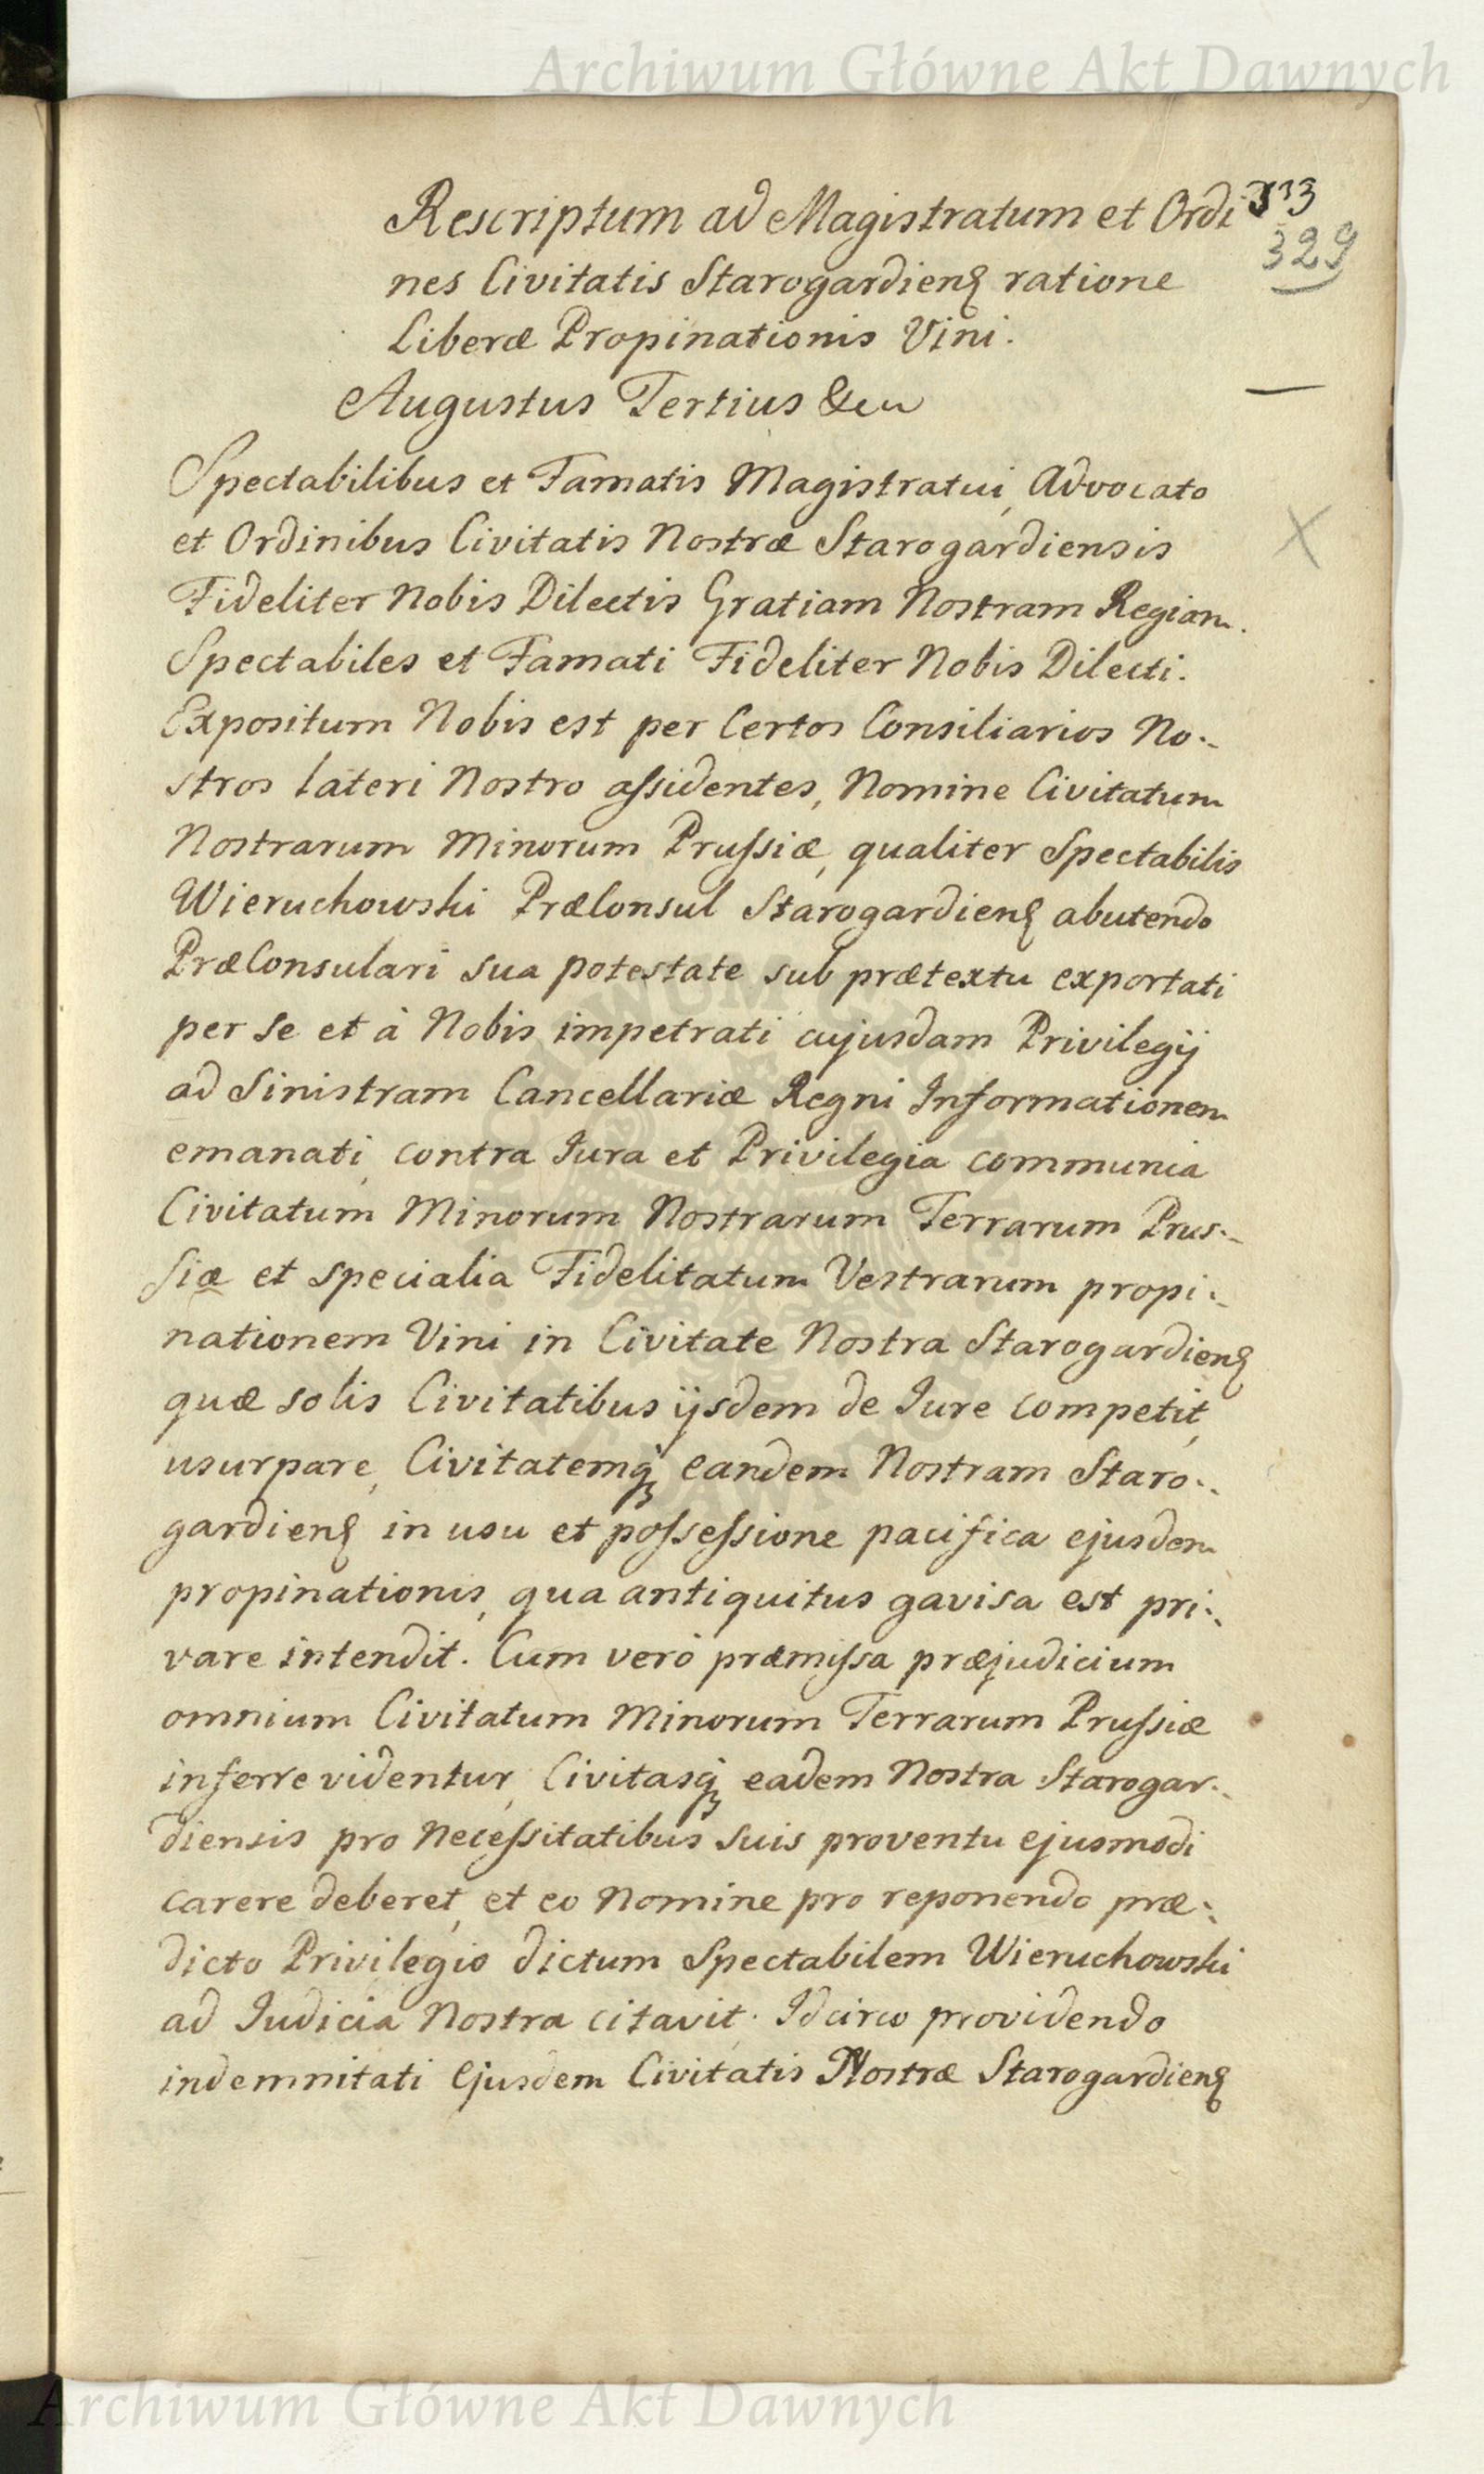 Archiwum Główne Akt Dawnych
Rescriptum ad Magistratum et Ordi
329
nes Civitatis Starogardienȩ ratione
Liberæ Propinationis Vini.
Augustus Tertius &cu
Spectabilibus et Famatis Magistratui, Advocato
et Ordinibus Civitatis Nostræ Starogardiensis
Fideliter Nobis Dilectis Gratiam Nostram Regiam.
Spectabiles et Famati Fideliter Nobis Dilecti.
Expositum Nobis est per Certos Consiliarios No-
stros lateri Nostro aſsidentes, Nomine Civitatum
Nostrarum Minorum Pruſsiæ, qualiter Spectabilis
Wieruchowski PræConsul Starogardienȩ abutendo
PræConsulari sua potestate sub prætextu exportati
per se et à Nobis impetrati cujusdam Privilegij
ad Sinistram Cancellariæ Regni Informationem
emanati, contra Jura et Privilegia communia
Civitatum Minorum Nostrarum Terrarum Prus-
siæ et specialia Fidelitatum Vestrarum propi-
nationem Vini in Civitate Nostra Starogardienȩ
quæ solis Civitatibus ijsdem de Jure competit,
usurpare, Civitatemq́ eandem Nostram Staro-
gardienȩ in usu et poſseſsione pacifica ejusdem
propinationis, qua antiquitus gavisa est pri-
vare intendit. Cum verò præmiſsa præjudicium
omnium Civitatum Minorum Terrarum Pruſsiæ
inferre videntur, Civitasq́ eadem Nostra Starogar-
diensis pro Neceſsitatibus suis proventu ejusmodi
carere deberet, et eo Nomine pro reponendo præ-
dicto Privilegio dictum Spectabilem Wieruchowski
ad Judicia Nostra citavit. Idcirco providendo
indemnitati Ejusdem Civitatis Nostræ Starogardienȩ
Archiwum Główne Akt Dawnych